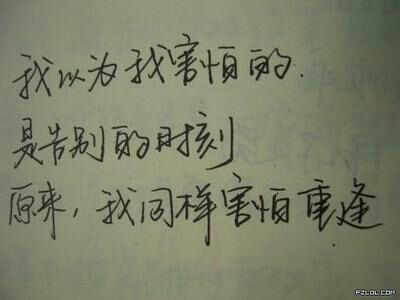 我以为我害怕的.
是告别的时刻
原来，我同样害怕重逢
PZLOL.COM